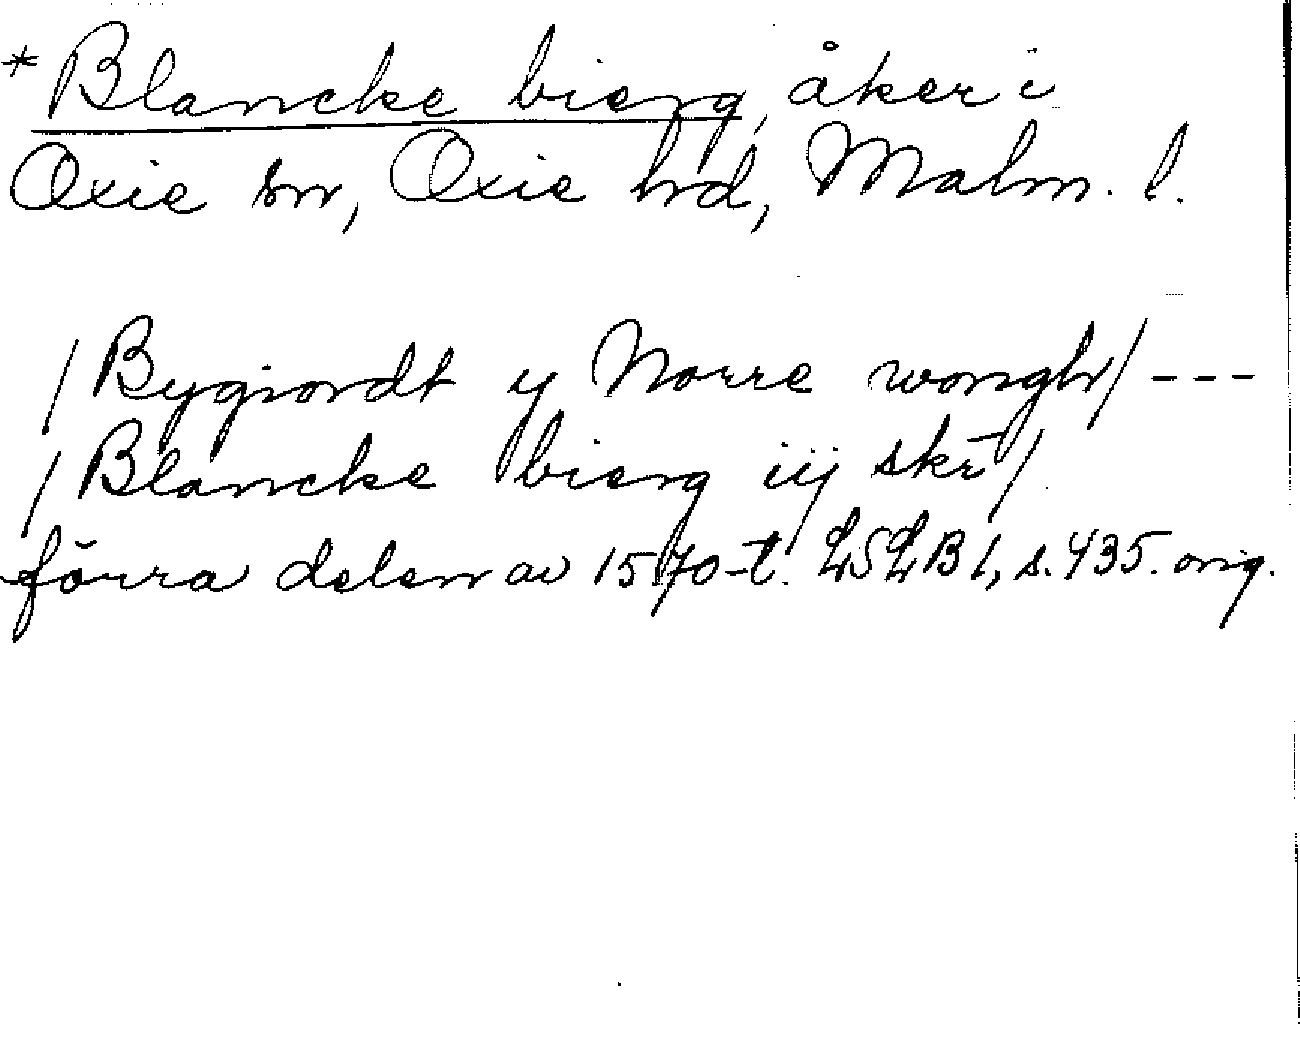 *Blancke bierg, åker i
Oxie sn, Oxie hd, Malm. l.
/Bygiordt y Norre wongh/ - - -
/Blancke bierg iij skr̄/
förra delen av 1570-t. LSLB 1, s. 435. orig.